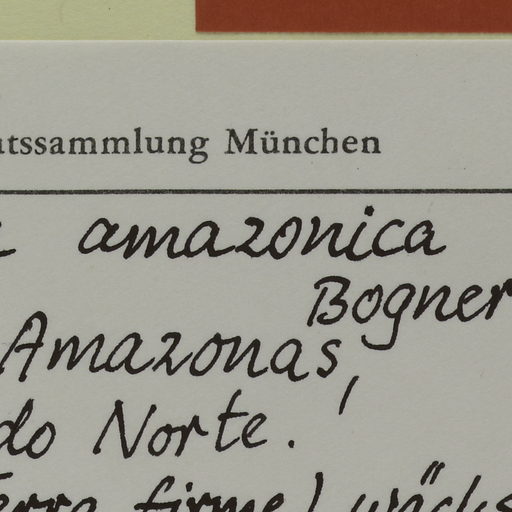 atssammlung München
amazonica
Bogner
Amazonas,
do Norte.
Terra firme) wächs